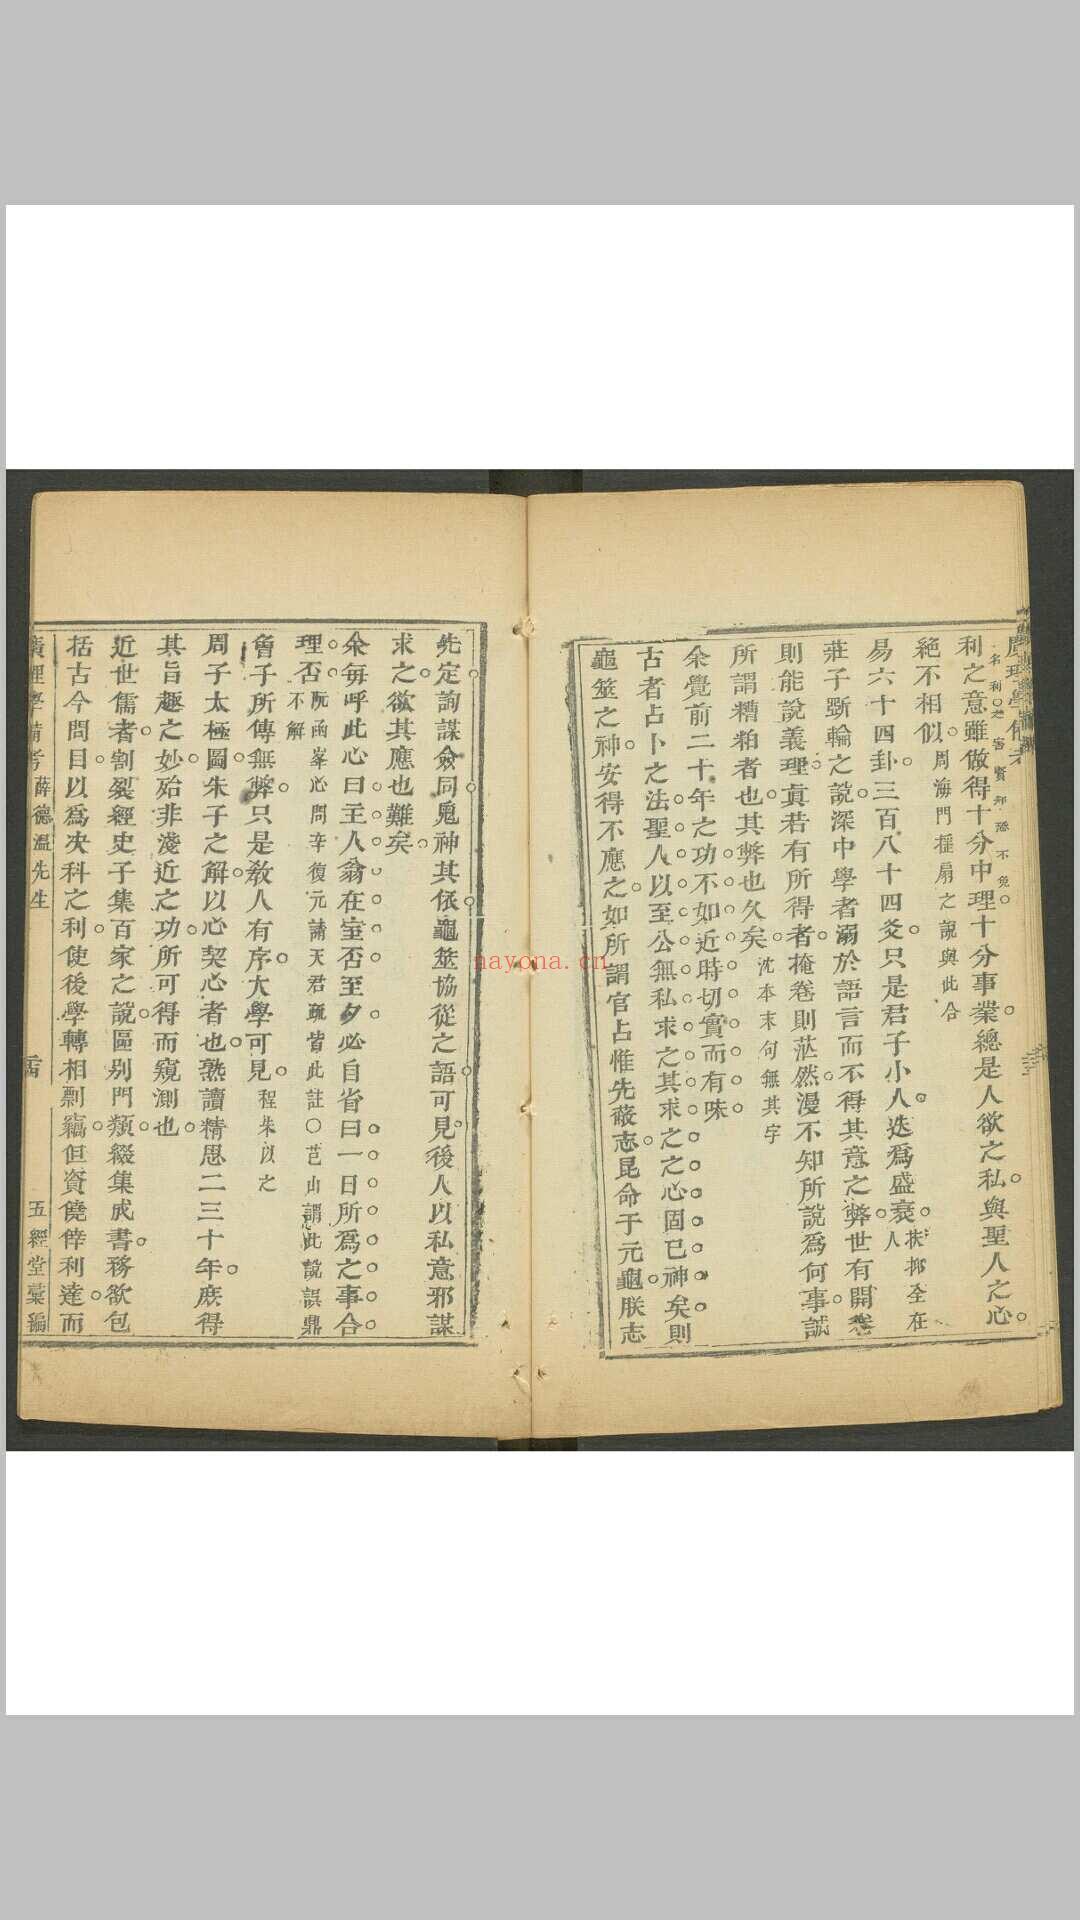 利之意雖做得十分中理十分事業總是人欲之私與聖人之心
絶不相似周海門搖扇之說與此合
易六十四卦三百八十四爻只是君子小人迭爲盛衰扶抑全在人
莊子斲輪之說深中學者溺於語言而不得其意之弊世有開卷
則能說義理眞若有所得者掩卷則茫然漫不知所說爲何事誠
所謂糟粕者也其弊也久矣沈本末何無其字
余覺前二十年之功不如近時切實而有味
古者占卜之法聖人以至公無私求之其求之之心固已神矣則
龜筮之神安得不應之如所謂官占惟先蔽志昆命于元龜朕志
先定詢謀僉同鬼神其依龜筮協從之語可見後人以私意邪謀
求之欲其應也難矣
余每呼此心曰主人翁在室否至夕必自省曰一日所爲之事合
理否阮函峯必問辛復元誦天君疏皆此註○芑山謂此說誤鼎不解
會子所傳無弊只是敎人有序大學可見程朱以之
周子太極圖朱子之解以心契心者也熟讀精思二三十年庶得
其旨趣之妙殆非淺近之功所可得而窺測也
近世儒者割裂經史子集百家之說區别門類綴集成書務欲包
括古今問目以爲决科之利使後學轉相剽竊但資僥倖利達而
廣理學備考 薛德溫先生 五經堂彙編
nayona.cn